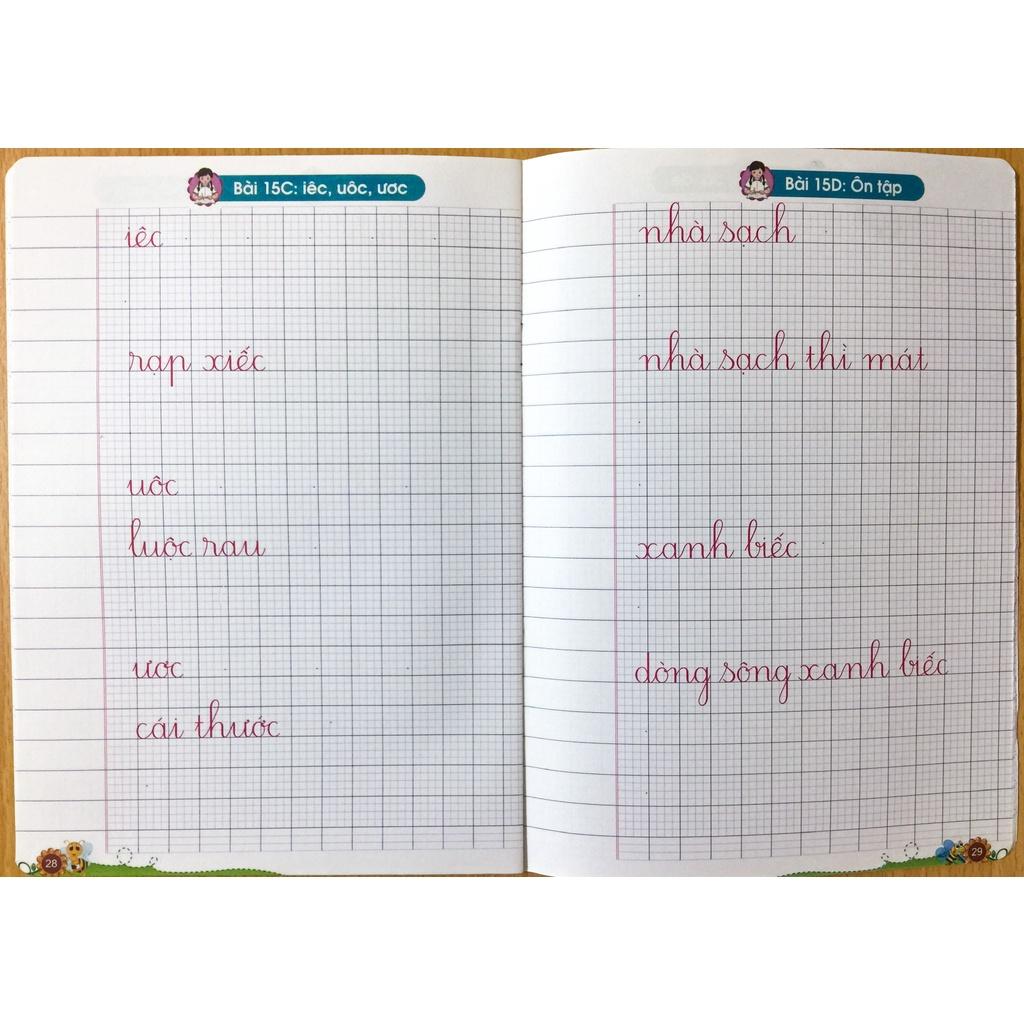 Bài 15C: iêc, uôc, ươc
iêc
rạp xiếc
uôc
luộc rau
ươc
cái thước
28
Bài 15D: Ôn tập
nhà sạch
nhà sạch thì mát
xanh biếc
dòng sông xanh biếc
29